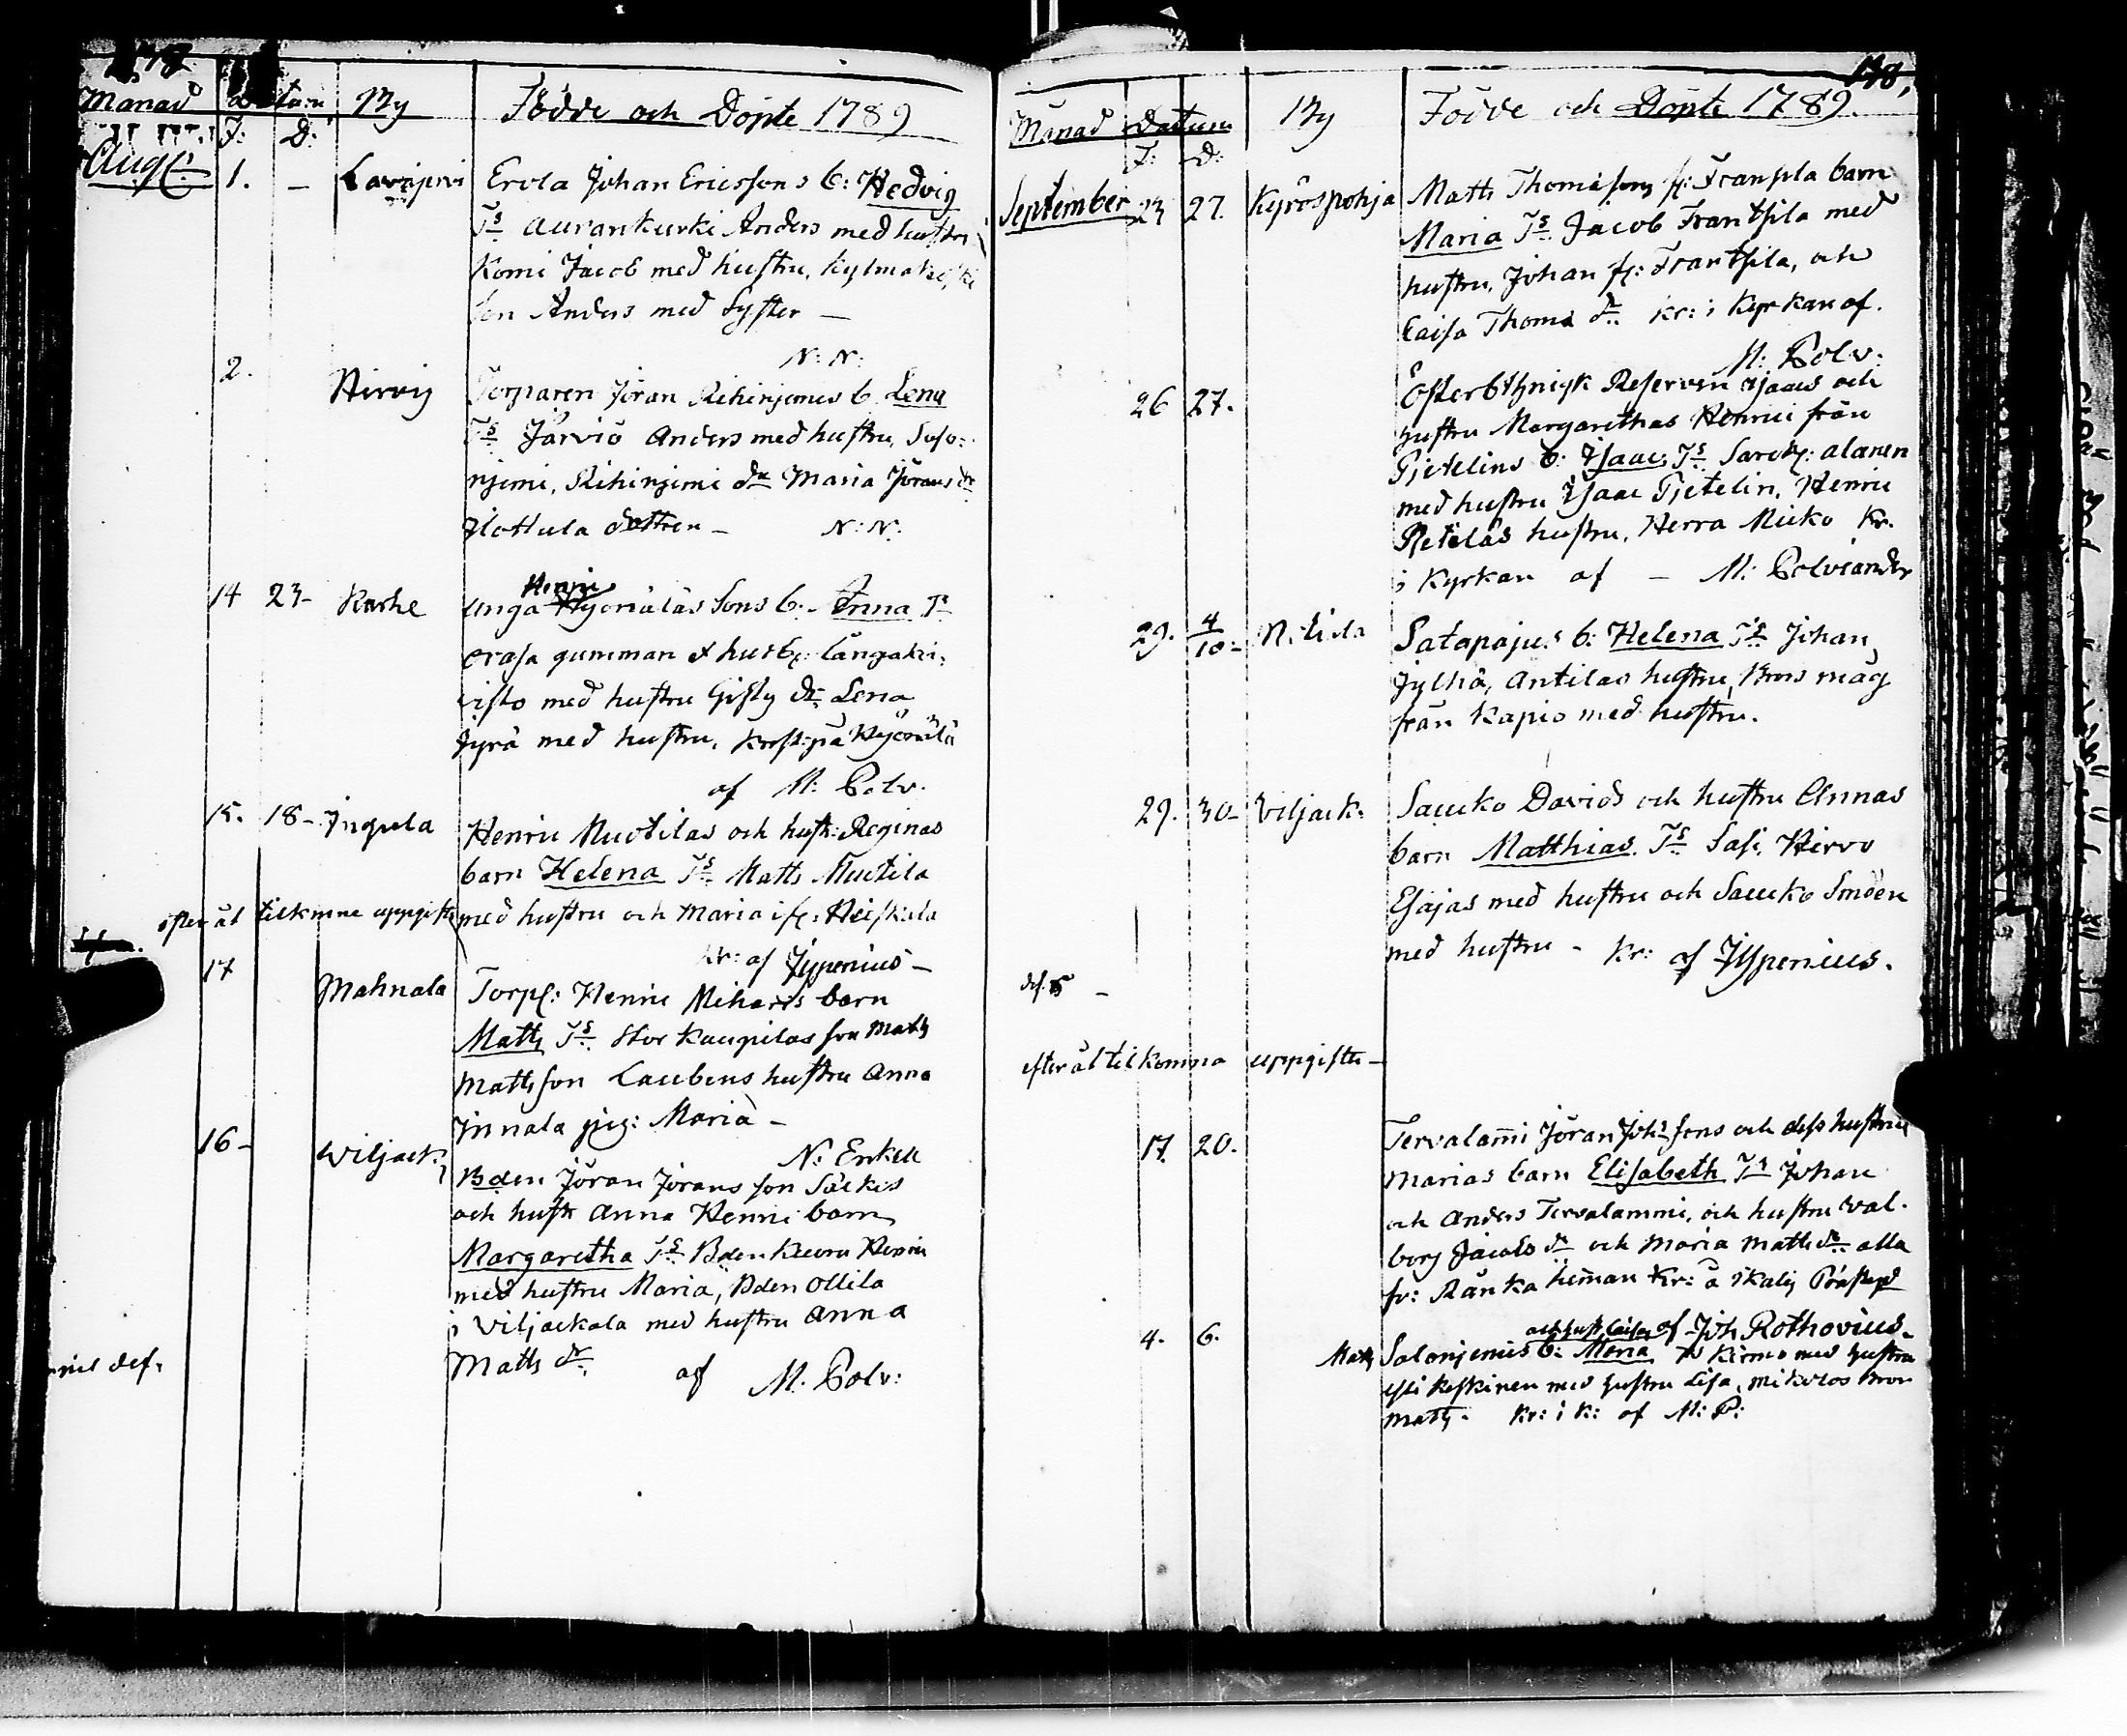 Månad Datum By Födde och Döpte 1789
F: D:
Aug: 1. – Lavajervi Erola Johan Ericssons b: Hedvig
Ts Aurankurki Anders med hustru
Komi Jacob med hustru, Kylmakoski
Son Anders med Syster –
N: N:
2. Hirvij Torparen Jöran Rihinjemis b. Lena
Ts Järviö Anders med hustru, Salo-
njemi, Rihinjemi dr Maria Jörans dr
Flottula dottren – N: N:
14 23– Karhe Unga Henric Hyönäläs Sons b: Anna Ts
Orasa gumman husb: Långaki-
visto med hustru dr Lena
Jyrä med hustru, på Hyönälä
af M: Polv.
15. 18– Ingula Henric Muotilas och hust: Reginas
barn Helena Ts Matts Muotila
efteråt tilkomne uppgifter med hustru och Maria Heiskala
kr: af Jypenius –
17 Mahnala Torp: Henric Miharis barn
Matts Ts Stor Kaupilas son Matts
Mattsson Laubens hustru Anna
Innala pig: Maria –
N: Enkell
16– Wiljack: Bden Jöran Jörans son Säckis
och hustr Anna Henric barn
Margaretha Ts Bden Kuoru Henric
med hustru Maria, Bden Ollila
i Viljackala med hustru Anna
Matts dr. af M. Polv:
def.
178,
Månad Datum By Födde och Döpte 1789.
F: D:
September 23 27. Kyröspohja Matts Thomæsons Frantsila barn
Maria Ts Jacob Frantsila med
hustru, Johan Frantsila, och
Caisa Thomæ dr kr: i Kyrkan af.
M: Polv:
26 27. Österbthnisk Reserven Isaacs och
hustru Margarethas Henrici från
Pjetelins b: Isaac Ts alanen
med hustru Isaac Pjetelin, Henric
Pjeteläs hustru, Herra Micko Kr.
i Kyrkan af – M: Polviander
29. 4/10– Satapajus b: Helena Ts Johan
Jylhä, Antilas hustru, Brors måg
från Kapio med hustru.
29. 30– Viljack: Saucko Davids och hustru Annas
barn Matthias. Ts Sasi, Hirvo
Esajas med hustru och Saucko Smöen
med hustru – kr: af Jypenius.
def. –
efteråt tilkomna uppgifter –
17. 20. Tervalammi Jöran Johssons och dess hustru
Marias barn Elisabeth Ts Johan
och Anders Tervalammi, och hustru Val-
borg Jacobs dr och Maria Matts dr alla
fr: Ränka heman kr: å Ikalis Prästegd
och hust Caisas af Joh Rothovius.
4. 6. Matts Salonjemis b: Maria Ts Kirmo med hustru
Keskinen med hustru Lisa, Mikolos Bror
Matts. kr: i k: af M: P: